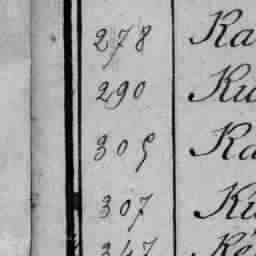 278 Ka
290 Ku
305 Ka
307 Ku
347 Ké